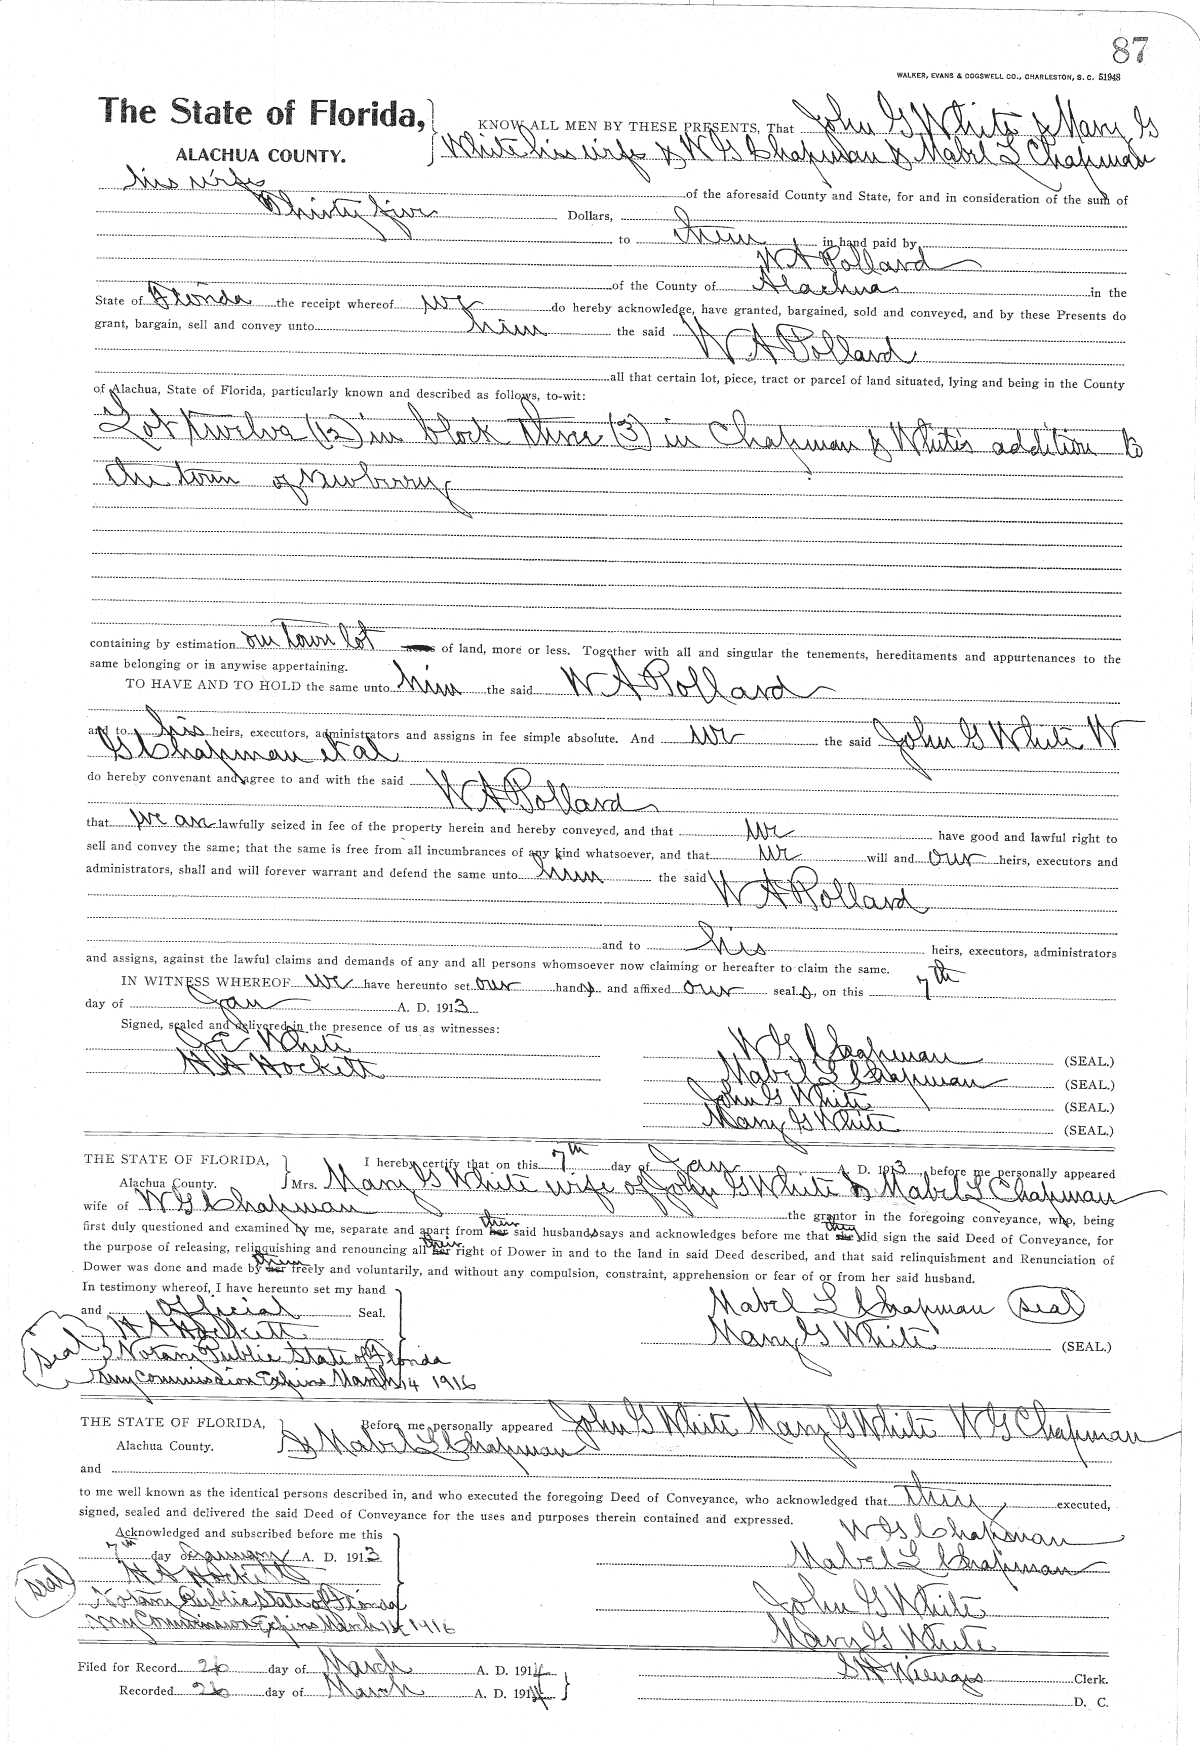 87
WALKER, EVANS & COGSWELL CO., CHARLESTON, S. C. 51948
The State of Florida,
ALACHUA COUNTY.
KNOW ALL MEN BY THESE PRESENTS, That John G White & Mary G
White his wife & W G Chapman & Mabel L Chapman
his wife of the aforesaid County and State, for and in consideration of the sum of
Thirty five Dollars,
to them in hand paid by
W A Pollard
of the County of Alachua in the
State of Florida the receipt whereof we do hereby acknowledge, have granted, bargained, sold and conveyed, and by these Presents do
grant, bargain, sell and convey unto him the said W A Pollard
all that certain lot, piece, tract or parcel of land situated, lying and being in the County
of Alachua, State of Florida, particularly known and described as follows, to-wit:
Lot twelve (12) in block three (3) in Chapman & White's addition to
the town of Newberry
containing by estimation one town lot acres of land, more or less. Together with all and singular the tenements, hereditaments and appurtenances to the
same belonging or in anywise appertaining.
TO HAVE AND TO HOLD the same unto him the said W A Pollard
and to his heirs, executors, administrators and assigns in fee simple absolute. And we the said John G White W
G Chapman et al
do hereby convenant and agree to and with the said W A Pollard
that we are lawfully seized in fee of the property herein and hereby conveyed, and that we have good and lawful right to
sell and convey the same; that the same is free from all incumbrances of any kind whatsoever, and that we will and our heirs, executors and
administrators, shall and will forever warrant and defend the same unto him the said W A Pollard
and to his heirs, executors, administrators
and assigns, against the lawful claims and demands of any and all persons whomsoever now claiming or hereafter to claim the same.
IN WITNESS WHEREOF we have hereunto set our hands and affixed our seals, on this 7th
day of Jan A. D. 1913
Signed, sealed and delivered in the presence of us as witnesses:
J E White
H A Hockett
W G Chapman (SEAL.)
Mabel L Chapman (SEAL.)
John G White (SEAL.)
Mary G White (SEAL.)
THE STATE OF FLORIDA,
Alachua County.
I hereby certify that on this 7th day of Jan A. D. 1913, before me personally appeared
Mrs. Mary G White wife of John G White & Mabel L Chapman
wife of W G Chapman the grantor in the foregoing conveyance, who, being
first duly questioned and examined by me, separate and apart from her their said husbands says and acknowledges before me that she they did sign the said Deed of Conveyance, for
the purpose of releasing, relinquishing and renouncing all her their right of Dower in and to the land in said Deed described, and that said relinquishment and Renunciation of
Dower was done and made by her them freely and voluntarily, and without any compulsion, constraint, apprehension or fear of or from her said husband.
In testimony whereof, I have hereunto set my hand
and official Seal.
H A Hockett
Seal
Notary Public State of Florida
My Commission Expires March 14 1916
Mabel L Chapman Seal
Mary G White (SEAL.)
THE STATE OF FLORIDA,
Alachua County.
Before me personally appeared John G White Mary G White W G Chapman
& Mabel L Chapman
and
to me well known as the identical persons described in, and who executed the foregoing Deed of Conveyance, who acknowledged that they executed,
signed, sealed and delivered the said Deed of Conveyance for the uses and purposes therein contained and expressed.
Acknowledged and subscribed before me this
7th day of January A. D. 1913
H A Hockett
Seal
Notary Public State of Florida
My Commission Expires March 14 1916
W G Chapman
Mabel L Chapman
John G White
Mary G White
Filed for Record 26 day of March A. D. 1914
Recorded 26 day of March A. D. 1914
S H Wienges Clerk.
D. C.